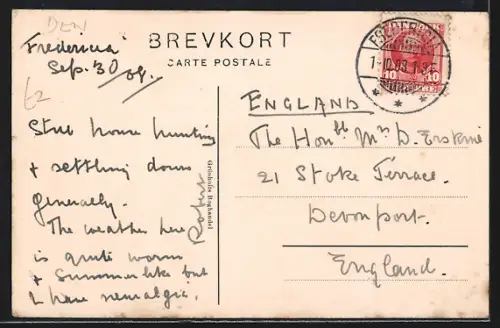 DEN
Fredericia
Sep. 30/09.
£2
BREVKORT
CARTE POSTALE
FREDERICIA
1-10.09.1-3 E
10 10
Still house hunting
+ settling down
generally.
The weather here
is quite warm
+ Summerlike but
I have neuralgia.
Robin
Grönholts Boghandel
ENGLAND
The Honble Mrs D. Erskine
21 Stoke Terrace.
Devonport.
England.